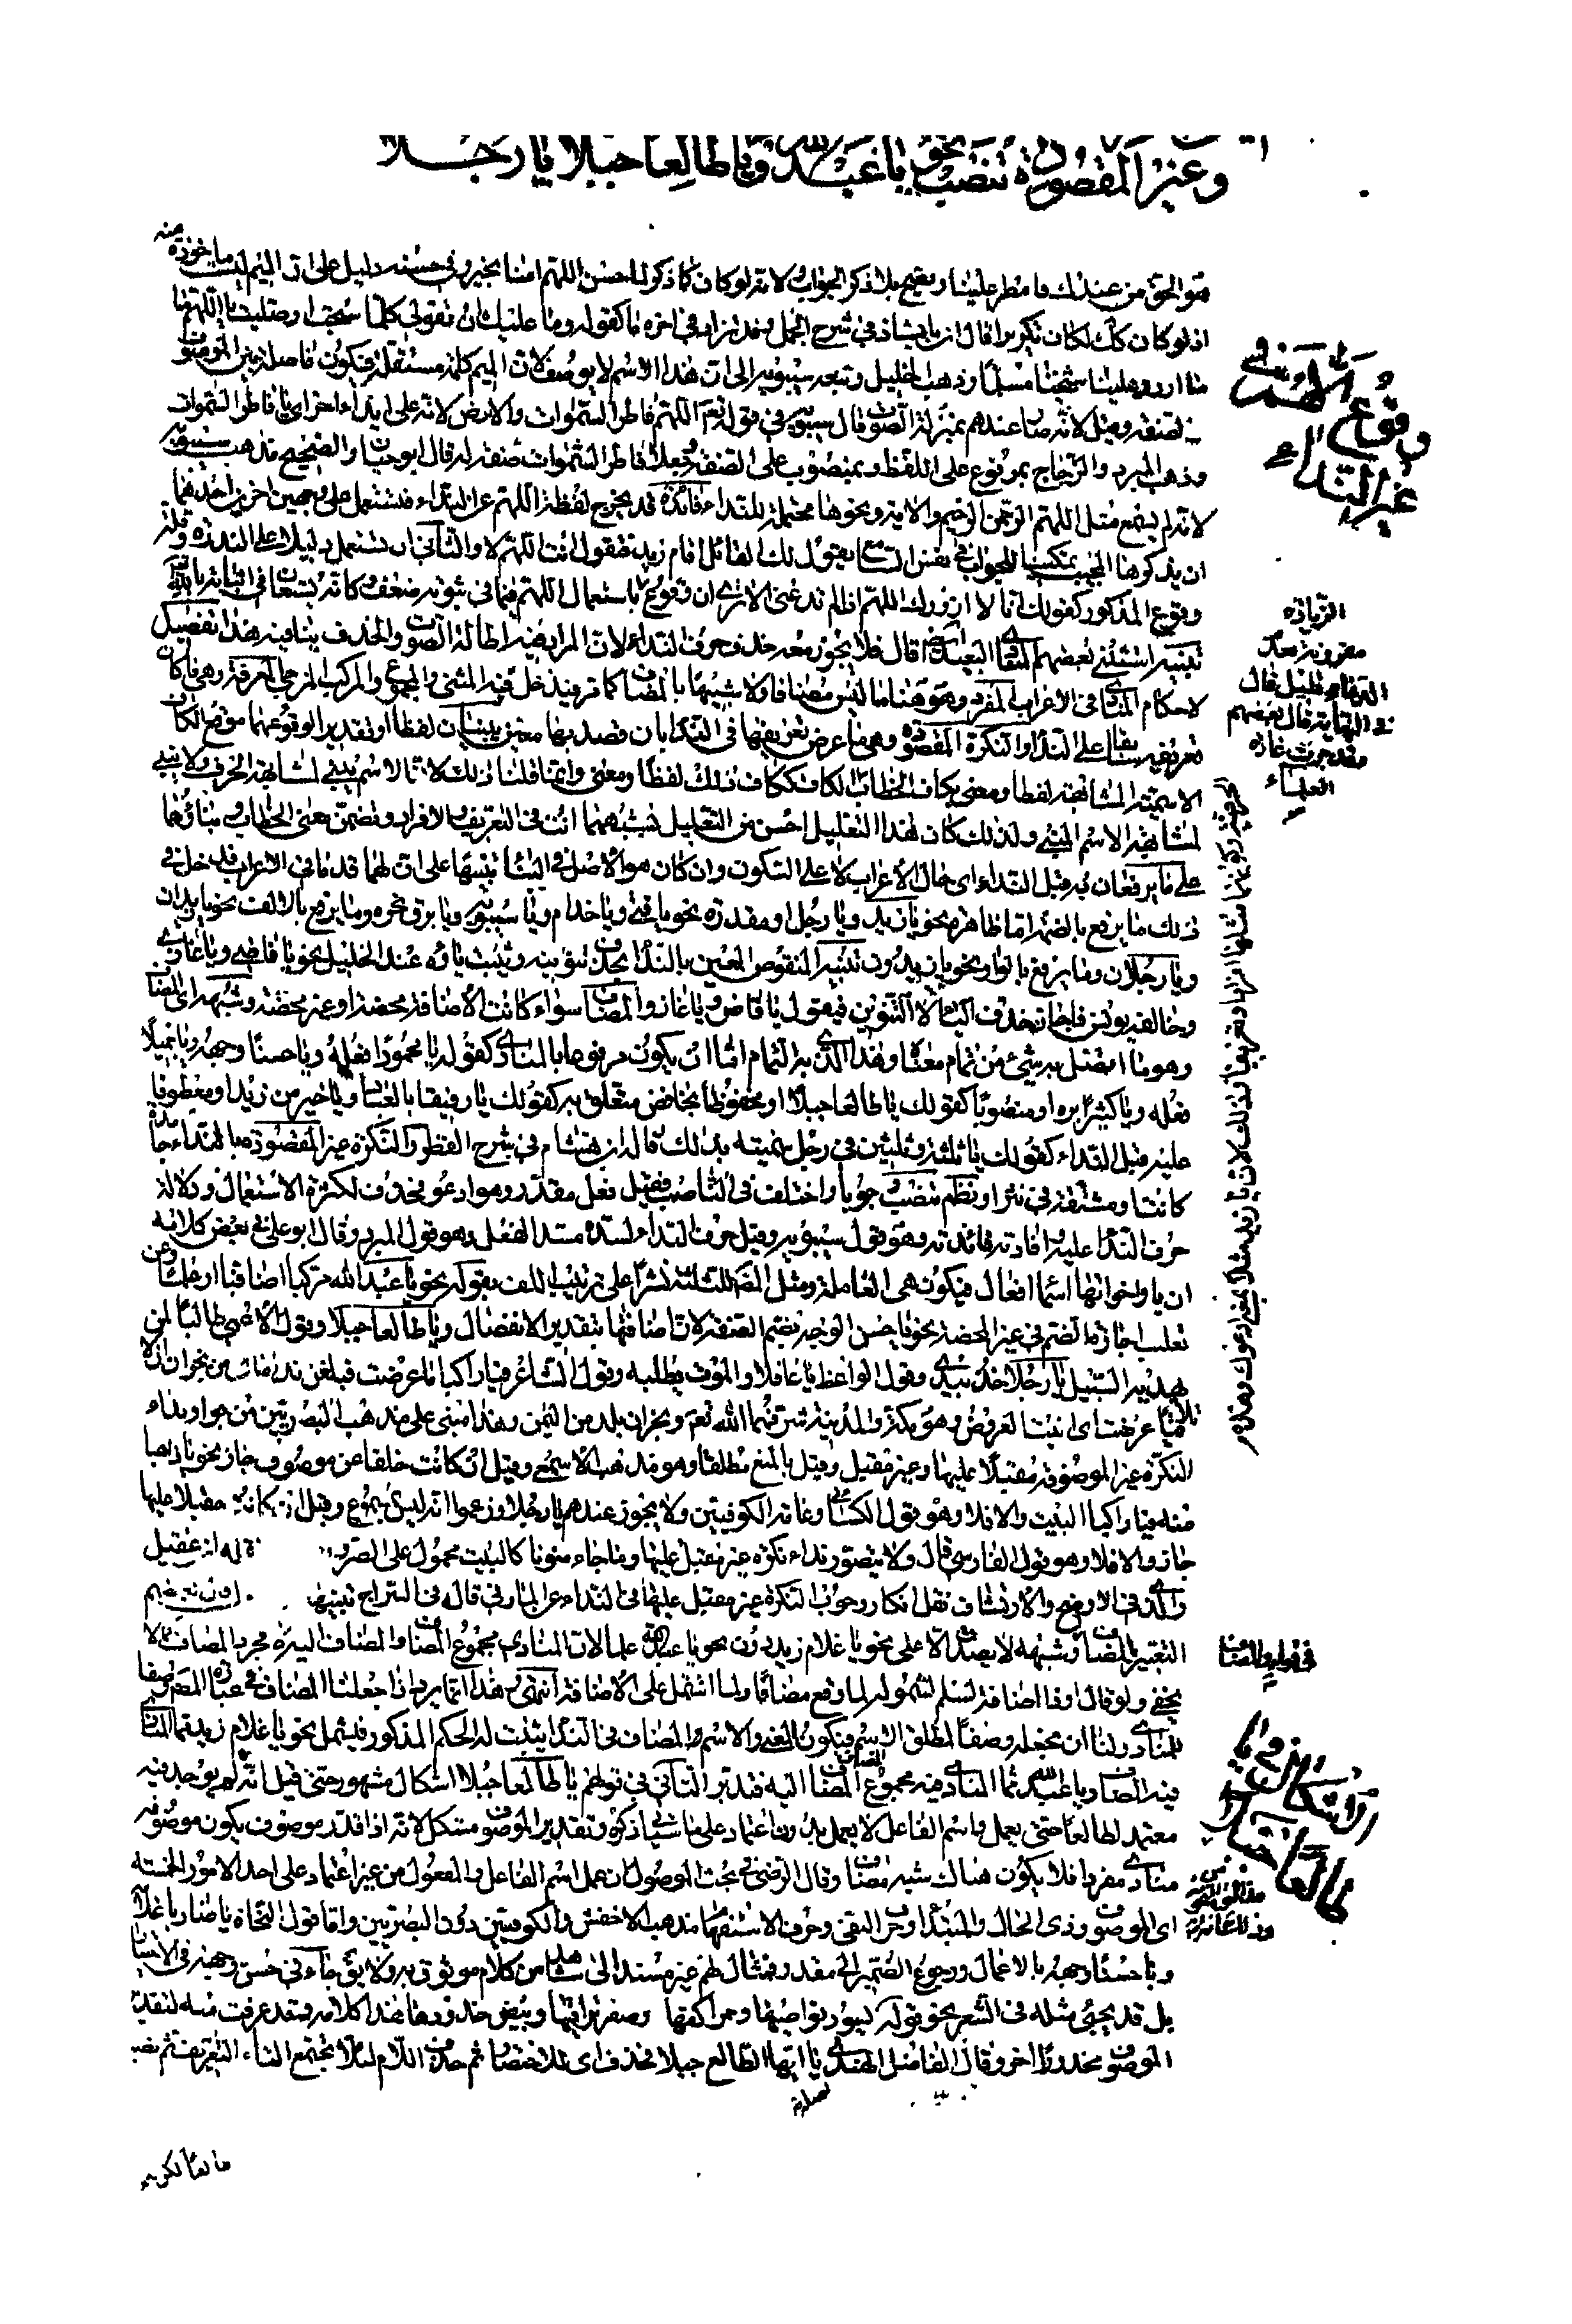 وغير المقصودة تنصب نحو يا عبد الله ويا طالعا جبلا يا رجلا
هو الحق من عندك فامطر علينا ويقبح بلا ذكر الجواب ولانه لو كان كما ذكر لما حسن اللهم امنا بخير وفي حسنه دليل على ان الميم ليست ماخوذة منه
اذ لو كان كك لكان تكريرا قال ابن بابشاذ في شرح الجمل وقد تزاد في اخره ما كقوله وما عليك ان تقولي كلما سبحت او صليت يا اللهم ما
اردد علينا شيخنا مسلما وذهب الخليل وتبعه سيبويه الى ان هذا الاسم لا يوصف لان الميم كلمة مستقلة فيكون فاصلا بين الموصوف
لصفته وقيل لانه صار عندهم بمنزلة الصوت قال سيبويه في قوله تعم اللهم فاطر السموات والارض لانه على نداء اخر اى يا فاطر السموات
وذهب المبرد والزجاج بمرفوع على اللفظ وبمنصوب على الصفة وجعلا فاطر السموات صفة له قال ابو حيان والصحيح مذهب سيبويه
لانه لم يسمع مثل اللهم الرحمن الرحيم والاية ونحوها محتملة للنداء فائدة قد يخرج لفظة اللهم عن النداء فتستعمل على وجهين اخرين احدهما
ان يذكرها المجيب تمكينا للجواب في نفس السامع يقول لك القائل اقام زيد فتقول انت اللهم لا والثاني ان تستعمل دليلا على الندرة وقلة
وقوع المذكور كقولك انا لا ازورك اللهم اذا لم تدعني الا ترى ان وقوع
تنبيه استثنى بعضهم المنادى البعيد قال فلا يجوز معه حذف حرف النداء لان المراد فيه اطالة الصوت والحذف ينافيه هذا تفصيل
لاحكام المنادى في الاعراب المفرد وهو هنا ما ليس مضافا ولا شبيها بالمضاف كما مر فيدخل فيه المثنى والمجموع والمركب المزجي المعرفة وهي ما كان
تعريفه سابقا على النداء والنكرة المقصودة وهي ما عرض تعريفها في النداء بان قصد بها معين يبنيان لفظا او تقديرا لوقوعهما موقع الكاف
الاسمية المشابهة لفظا ومعنى بكاف الخطاب الكاف ككاف ذلك لفظا ومعنى وانما قلنا ذلك لان الاسم يبنى لمشابهة الحرف ولا يبنى
لمشابهة الاسم المبني ولذلك كان هذا التعليل احسن من التعليل بشبههما انت في التعريف والافراد وتضمن معنى الخطاب وبناؤهما
على ما يرفعان به قبل النداء اى حال الاعراب لا على السكون وان كان هو الاصل في البناء تنبيها على ان لهما قدما في الاعراب فدخل في
ذلك ما يرفع بالضم اما ظاهرة نحو يا زيد ويا رجل او مقدرة نحو يا فتى ويا حذام ويا سيبويه ويا برق نحره وما يرفع بالالف نحو يا زيدان
ويا رجلان وما يرفع بالواو نحو يا زيدون تنبيه المنقوص المعين بالنداء يحذف تنوينه وتثبت ياؤه عند الخليل نحو يا قاضي ويا غازي
وخالفه يونس فاجاز حذف الياء لا التنوين فيقول يا قاض ويا غاز والمضاف سواء كانت الاضافة محضة او غير محضة وشبهه اى المضاف
وهو ما اتصل به شيء من تمام معناه وهذا الذي به التمام اما ان يكون مرفوعا بالمنادى كقوله يا محمودا فعله ويا حسنا وجهه ويا جميلا
فعله ويا كثيرا بره او منصوبا كقولك يا طالعا جبلا او مخفوضا بخافض متعلق به كقولك يا رفيقا بالعباد ويا خيرا من زيد او معطوفا
عليه قبل النداء كقولك يا ثلثة وثلثين في رجل سميته بذلك قاله ابن هشام في شرح القطر والنكرة غير المقصودة بالنداء جامدة
كانت او مشتقة في نثر او نظم تنصب وجوبا واختلف في الناصب فقيل فعل مقدر وهو ادعو محذوف لكثرة الاستعمال ودلالة
حرف النداء عليه وافادته فائدته وهو قول سيبويه وقيل حرف النداء لسده مسد الفعل وهو قول المبرد وقال ابو علي في بعض كلامه
ان يا واخواتها اسماء افعال فيكون هي العاملة ومثل المص للثلثة نشرا على ترتيب اللف بقوله نحو يا عبد الله مركبا اضافيا او علما وعن
ثعلب اجازة الضم في غير المحضة نحو يا حسن الوجه بضم الصفة لان اضافتها بتقدير الانفصال ويا طالعا جبلا وقول الاعمى طالبا لمن
يهديه السبيل يا رجلا خذ بيدي وقول الواعظ يا غافلا والموت يطلبه وقول الشاعر فيا راكبا اما عرضت فبلغن نداماى من نجران ان لا
تلاقيا عرضت اى اتيت العروض وهو مكة والمدينة شرفهما الله تعم ونجران بلد من اليمن وهذا مبني على مذهب البصريين من جواز نداء
النكرة غير الموصوفة مقبلا عليها وغير مقبل وقيل بالمنع مطلقا وهو مذهب الاصمعي وقيل ان كانت خلفا عن موصوف جاز نحو
فيا راكبا البيت والا فلا وهو قول الكسائي وعامة الكوفيين ولا يجوز عندهم يا رجلا وزعموا انه ليس بمسموع وقيل ان كانت مقبلا عليها
جاز والا فلا وهو قول الفارسي قال ولا يتصور نداء نكرة غير مقبل عليها وما جاء منونا كالبيت محمول على الضرورة قاله ابن عقيل
والذي في الاوضح والارتشاف نقل انكار وجود النكرة غير مقبل عليها في النداء عن المازني قال في السراج تنبيه
التعبير بالمضاف وشبهه لا يصدق الا على نحو يا غلام زيد دون نحو يا عبد الله علما لان المنادى مجموع المضاف والمضاف اليه لا مجرد المضاف كما لا
يخفى ولو قال او ذا اضافة لسلم لشموله لما وقع مضافا ولما اشتمل على الاضافة انتهى وهذا انما يرد اذا جعلنا المضاف في عبارة المص وصفا
للمنادى ولنا ان نجعله وصفا لمطلق الاسم فيكون المعنى والاسم المضاف في النداء يثبت له الحكم المذكور فيشمل نحو يا غلام زيد مما المنادى
فيه المضاف ويا عبد الله مما المنادى فيه مجموع المضاف والمضاف اليه فتدبر الثاني في قولهم يا طالعا جبلا اشكال مشهور حتى قيل انه لم يوجد فيه
معتمد لطالعا حتى يعمل واسم الفاعل لا يعمل بدون اعتماد على ما سيأتي ذكره وتقدير الموصوف مشكل لانه اذا قدر موصوف يكون موصوفه
منادى مفردا فلا يكون هناك شبه مضاف وقال الرضي في بحث الموصول ان عمل اسم الفاعل والمفعول من غير اعتماد على احد الامور الخمسة
اى الموصوف وذى الحال والمبتدا وحرف النفي وحرف الاستفهام مذهب الاخفش والكوفيين دون البصريين واما قول النحاة يا ضاربا غلامه
ويا حسنا وجهه بالاعمال ورجوع الضمير الى مقدر فمثال لهم غير مستند الى شاهد من كلام موثوق به
بل قد يجيء مثله في الشعر نحو قوله بسود نواصيها وحمر اكفها وصفر تراقيها وبيض خدودها هذا كلامه وقد عرفت منه تقدير
الموصوف محذورا اخر وقال الفاضل الهندي يا ايها الطالع جبلا فحذف اى للاختصار ثم حذف اللام لئلا تجتمع
وقوع اللهم في
غير النداء
الزيادة
مقرونة
قليل قال
في النهاية قال بعضهم
وقد جرت عادة
العلماء
في قوله والمضاف
الاشكال في يا
طالعا جبلا